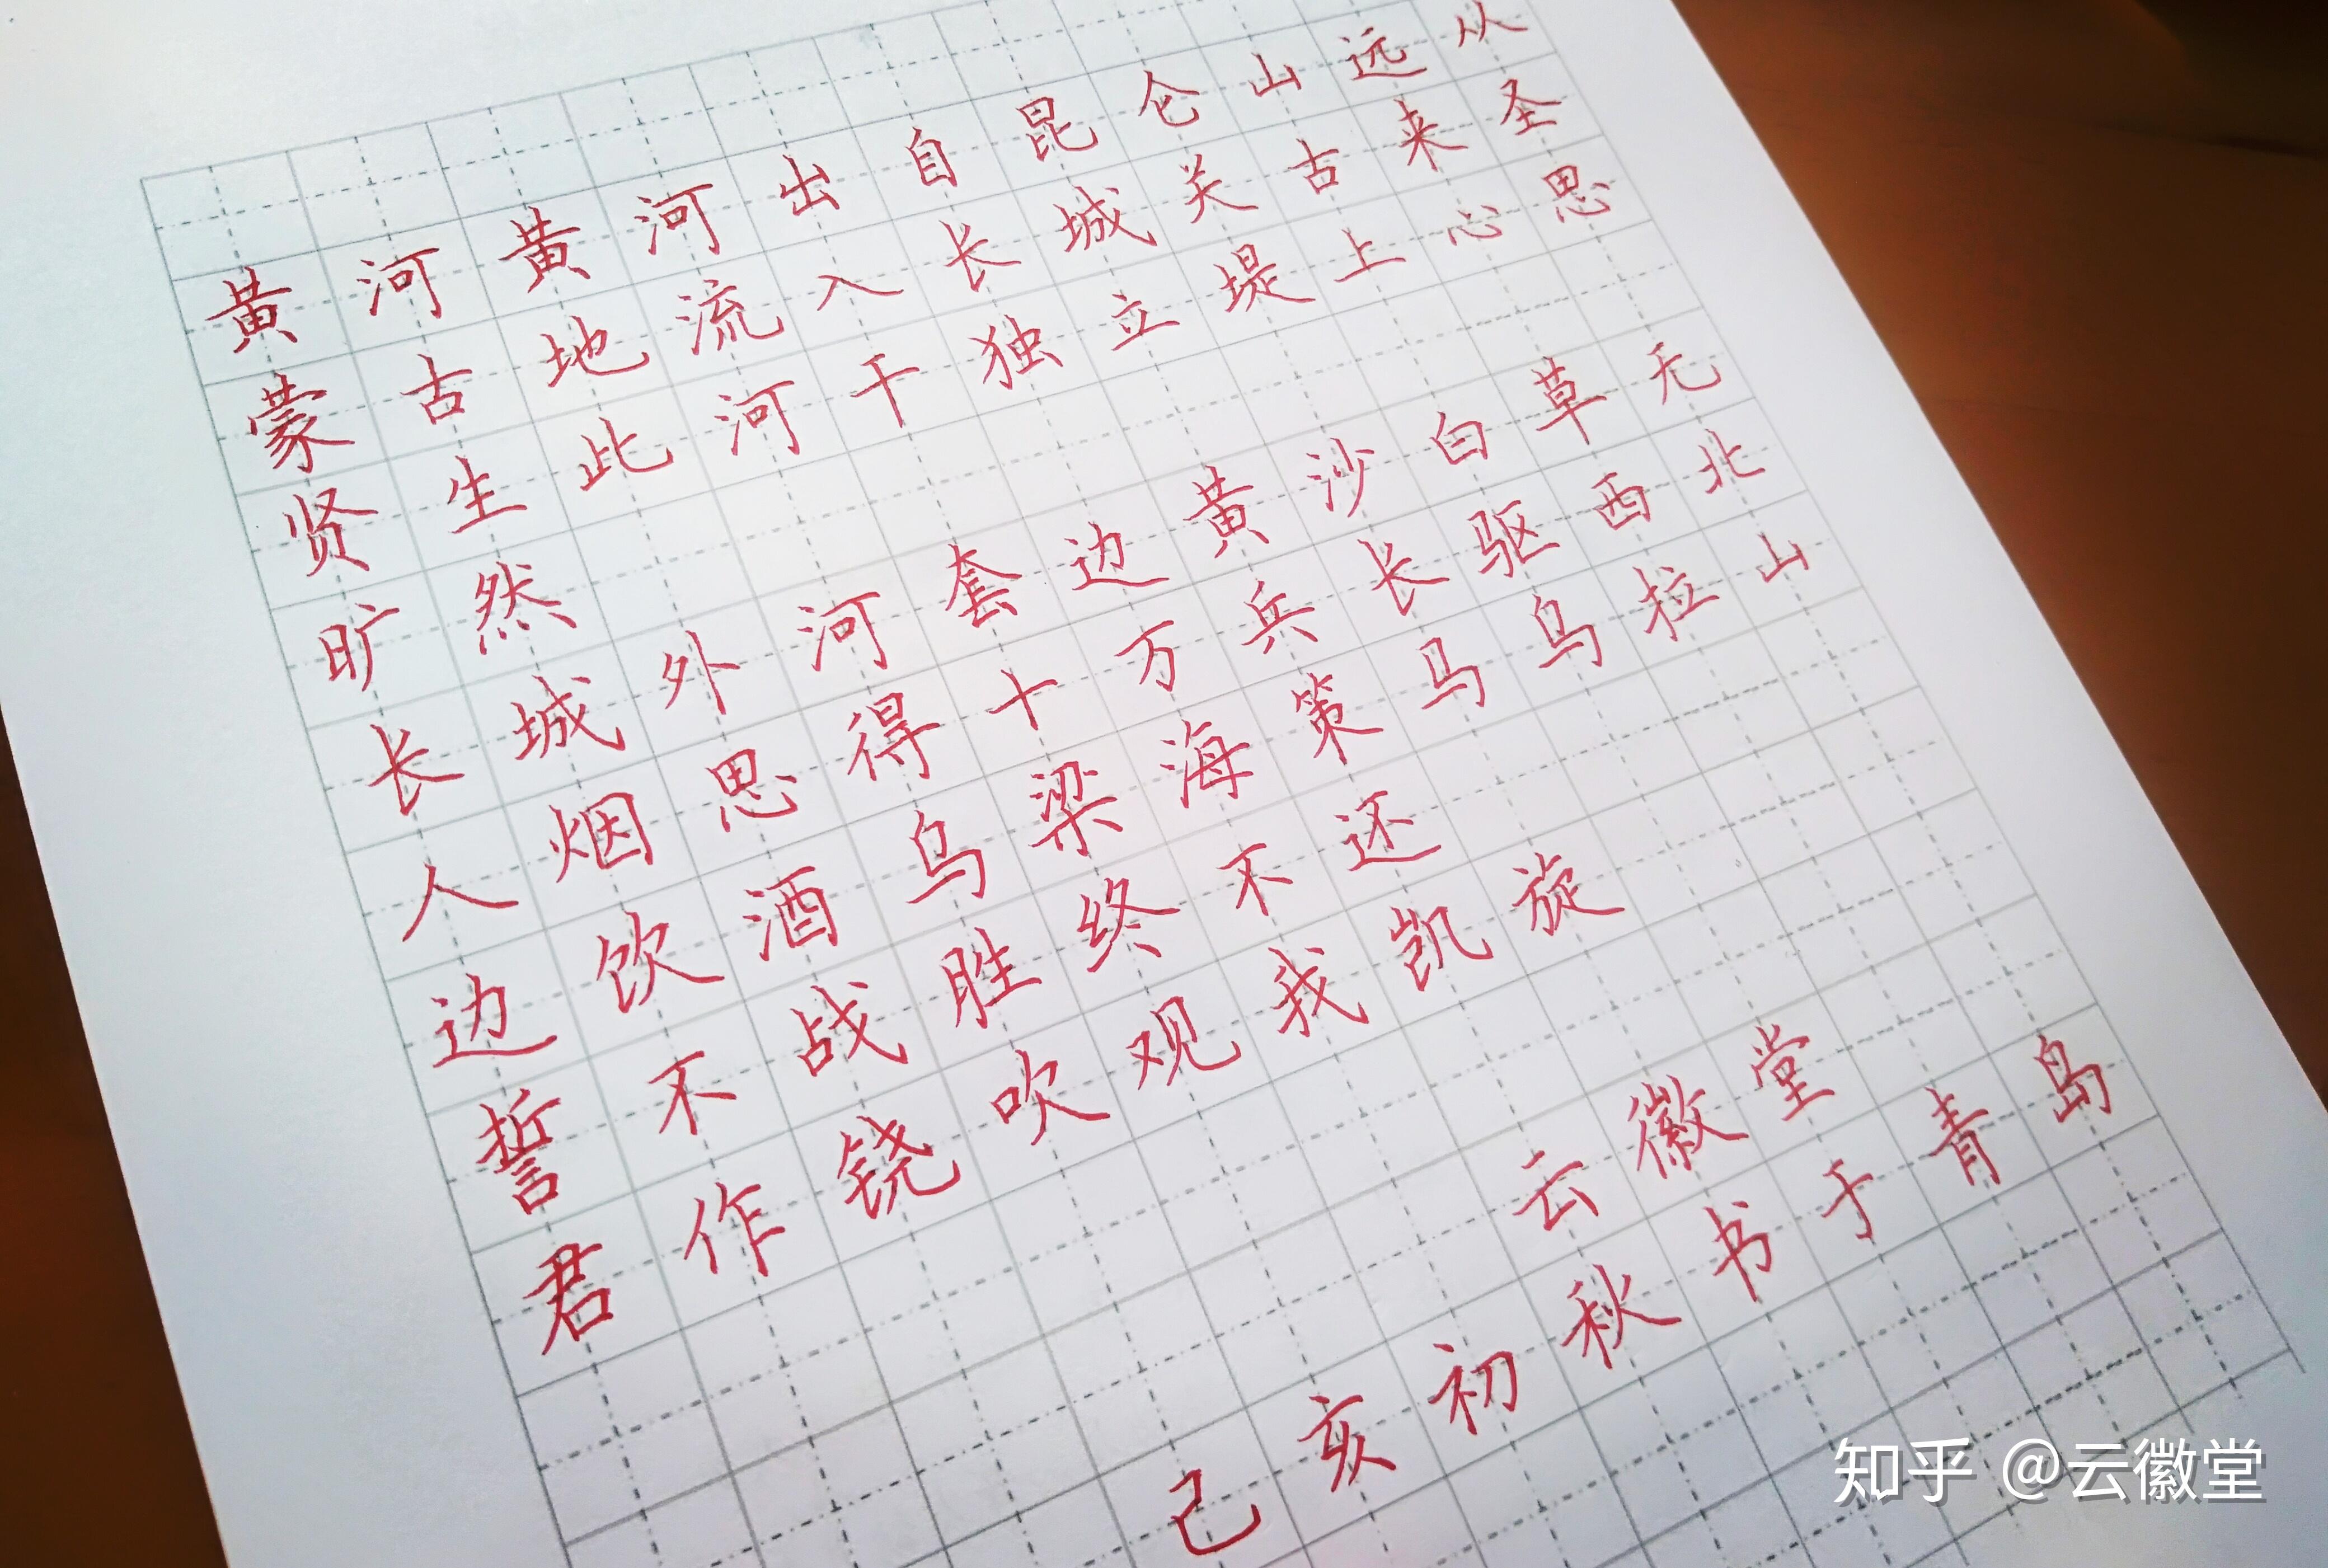 黄河黄河出自昆仑山远从
蒙古地流入长城关古来圣
贤生此河干独立堤上心思
旷然
长城外河套边黄沙白草无
人烟思得十万兵长驱西北
边饮酒乌梁海策马乌拉山
誓不战胜终不还
君作铙吹观我凯旋
云徽堂
己亥初秋书于青岛
知乎 @云徽堂